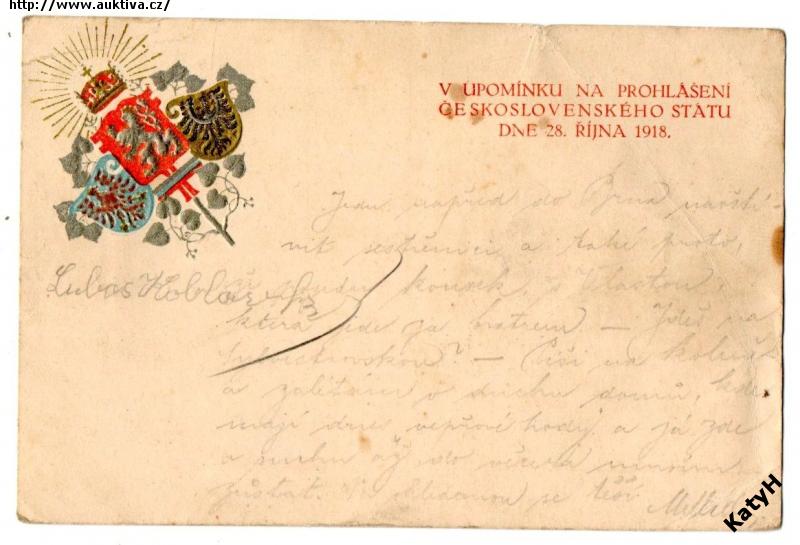 http://www.auktiva.cz/
V UPOMÍNKU NA PROHLÁŠENÍ
ČESKOSLOVENSKÉHO STÁTU
DNE 28. ŘÍJNA 1918.
Jedu napřed do Brna navští-
vit sestřenici a také proto,
kousek s Vlastou,
která jede za bratrem – Jdeš na
? – Píši na
a zalétám v duchu domů, kde
mají dnes vepřové hody a já zde
o suchu až do večera musím
zůstat. Na shledanou se těší
Lubos
KatyH